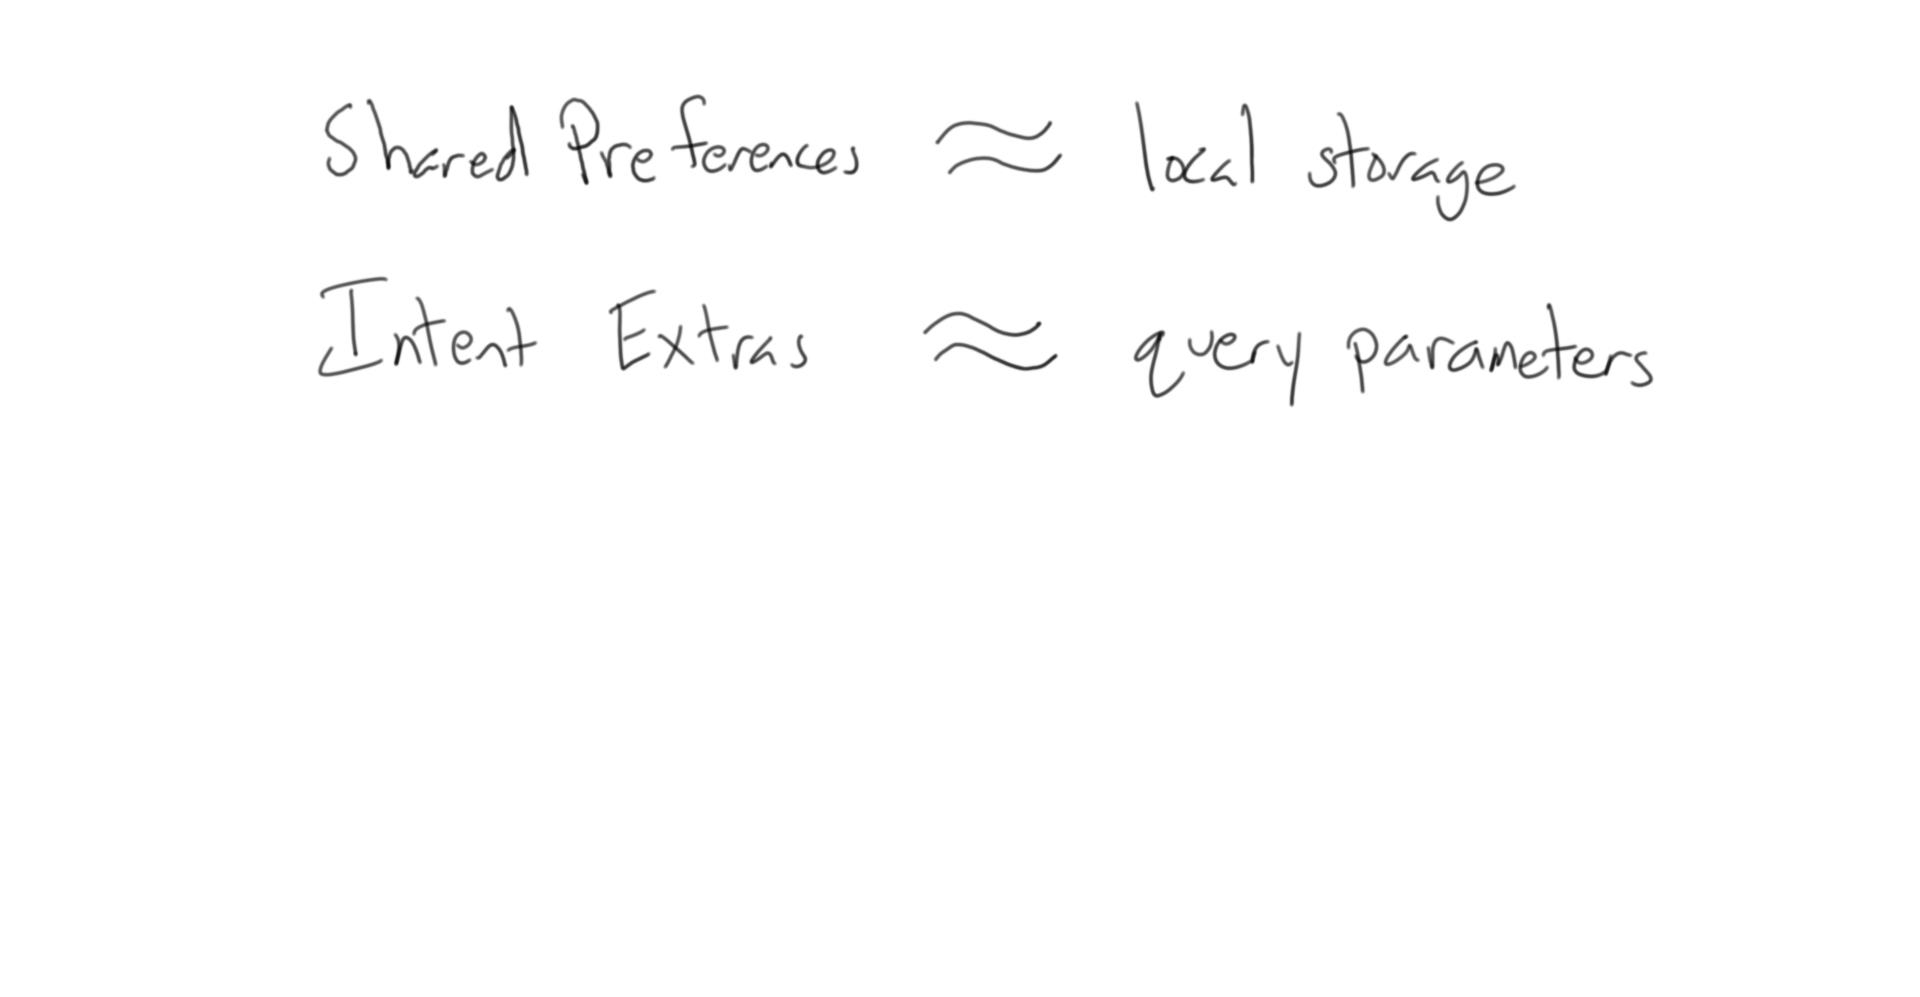 Shared Preferences ≈ local storage
Intent Extras ≈ query parameters